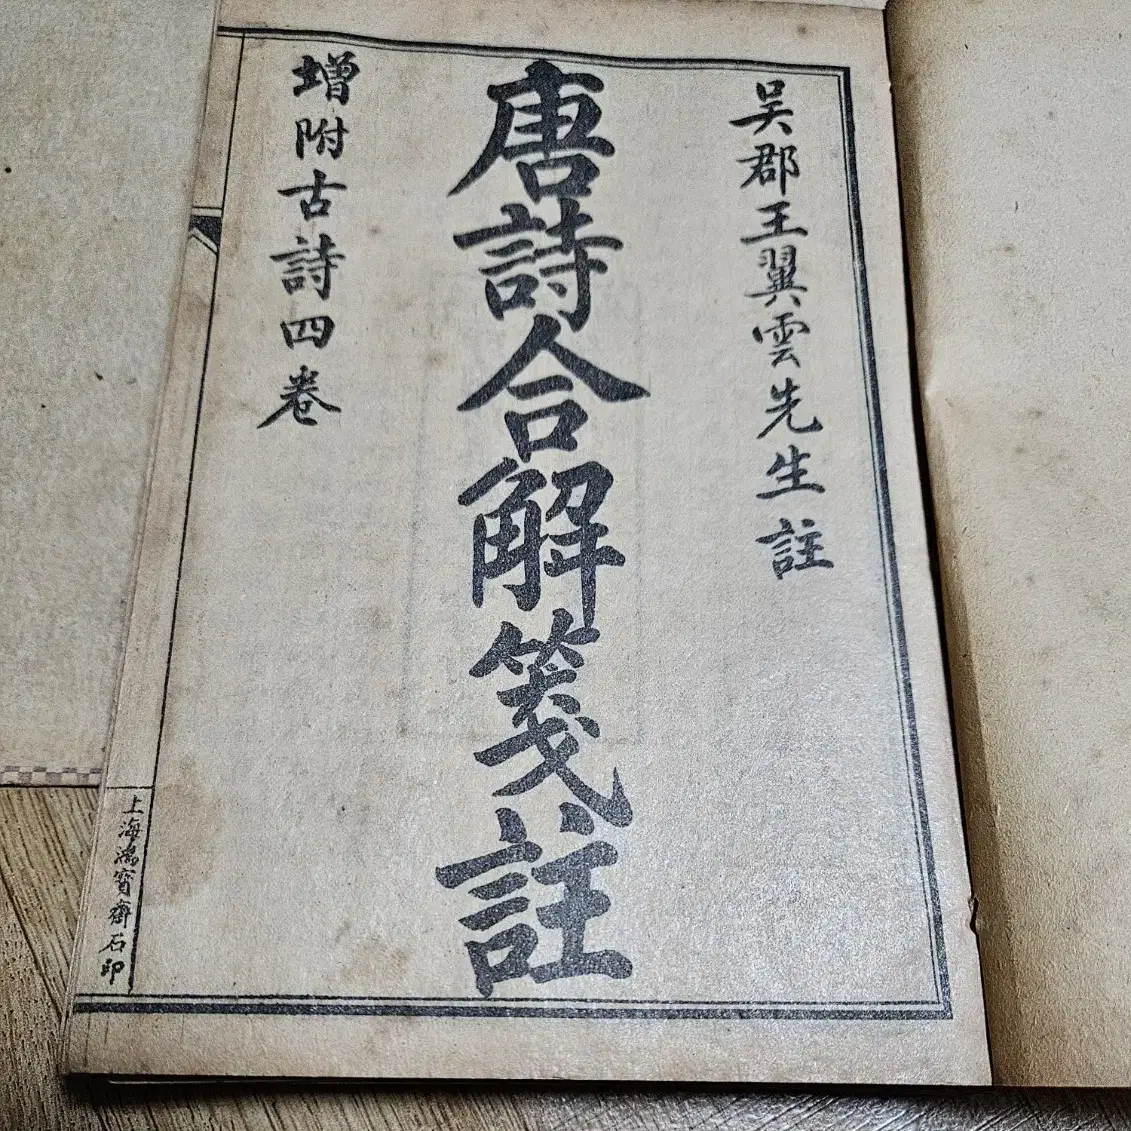 吴郡王翼雲先生註
唐詩合解箋註
增附古詩四卷
上海鴻寳齋石印